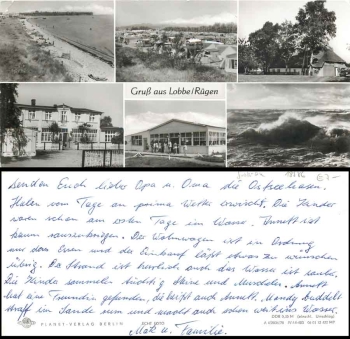 Gruß aus Lobbe/Rügen
Senden Euch liebe Opa u. Oma die Ostseehasen.
Haben vom Tage an prima Wetter erwischt. Die Kinder
waren schon am ersten Tage im Wasser. Annett ist
kaum rauszukriegen. Der Wohnwagen ist in Ordnung
nur das Essen und der Einkauf läßt etwas zu wünschen
übrig. Der Strand ist herrlich auch das Wasser ist sauber.
Die Kinder sammeln tüchtig Steine und Muscheln. Annett
hat eine Freundin gefunden, die heißt auch Annett. Mandy buddelt
straff im Sande rum und macht auch schon weit ins Wasser.
PLANET-VERLAG BERLIN
ECHT FOTO
u. Familie.